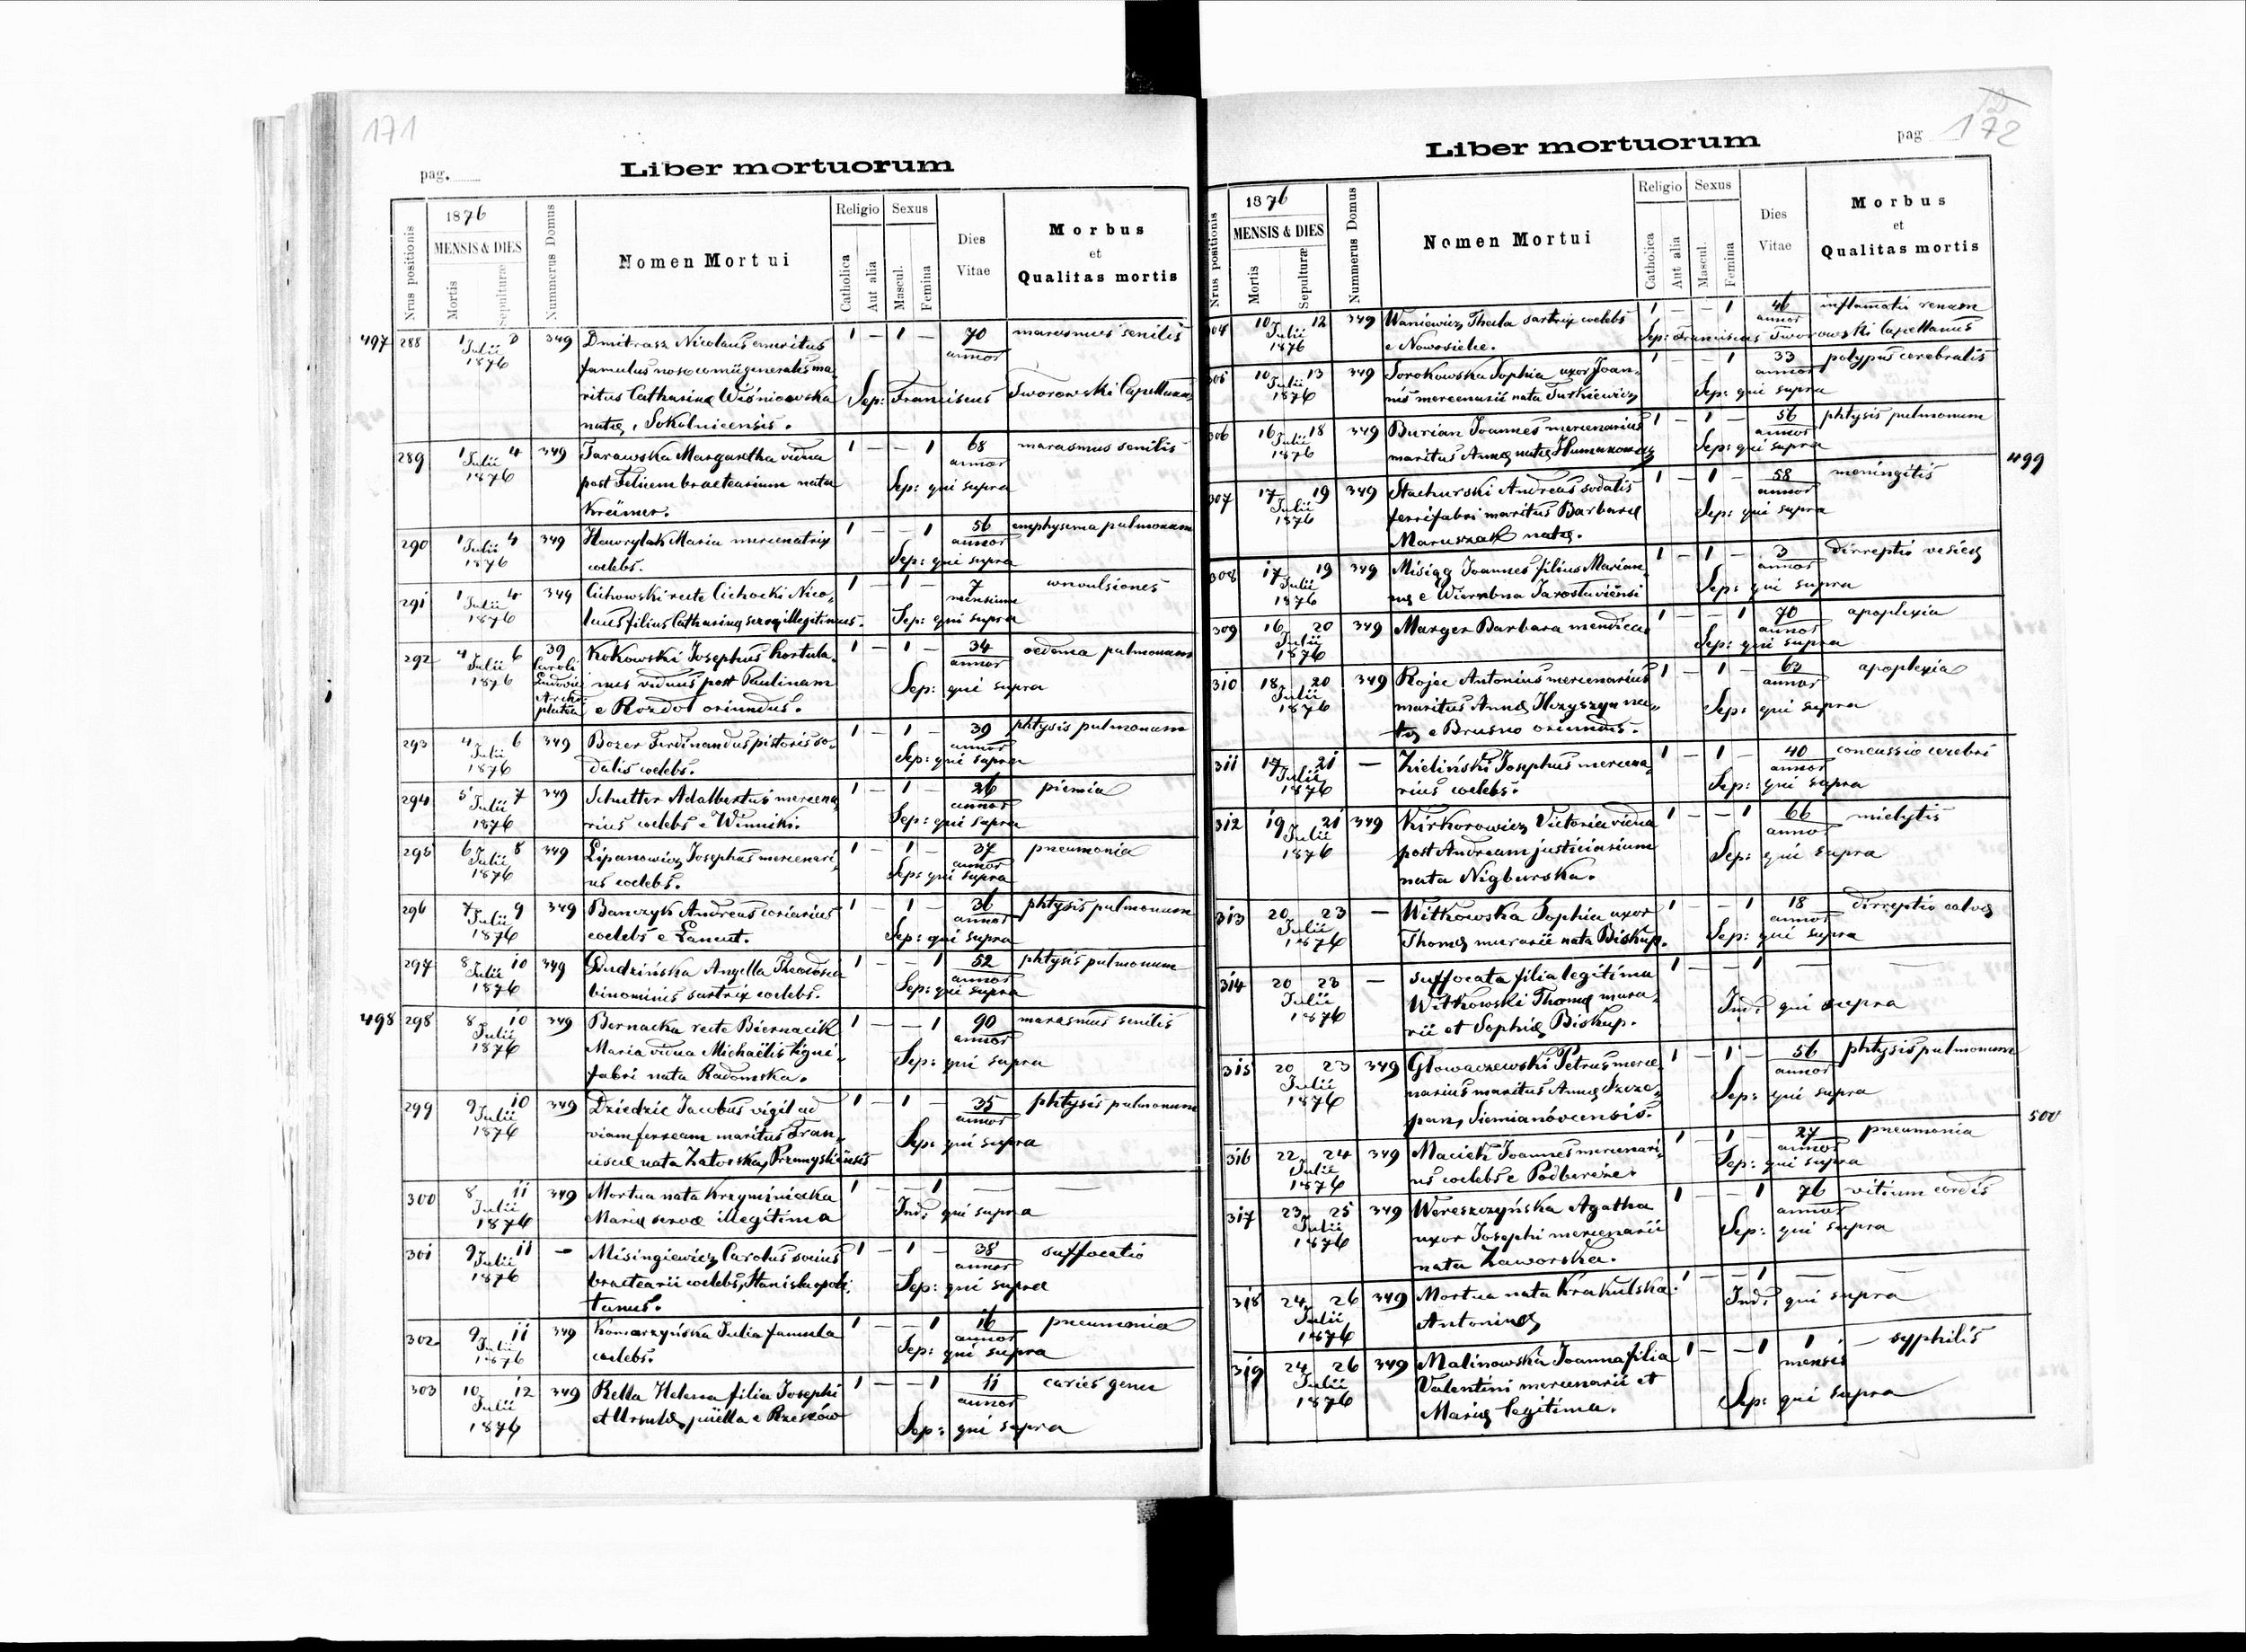 171
pag.
Liber mortuorum
Nrus positionis
1876
MENSIS & DIES
Mortis
Sepulturæ
Nummerus Domus
Nomen Mortui
Religio
Catholica
Aut alia
Sexus
Mascul.
Femina
Dies
Vitae
Morbus
et
Qualitas mortis
497 288 1 Julii 3 1876 349 Dmitrasz Nicolaus emeritus 1 — 1 — 70 annor marasmus senilis
famulus nosocomii generalis ma-
ritus Catharinę Wiśniowska Sep: Franciscus Tworowski Capellanus
natę, Sokolnicensis.
289 1 Julii 4 1876 349 Tarawska Margaretha vidua 1 — — 1 68 annor marasmus senilis
post Felicem bractearium nata Sep: qui supra
Kreimer.
290 1 Julii 4 1876 349 Hawrylak Maria mercenatrix 1 — — 1 56 annor emphysema pulmonum
coelebs. Sep: qui supra
291 1 Julii 4 1876 349 Cichowski recte Cichocki Nico- 1 — 1 — 7 mensium convulsiones
laus filius Catharinę servę illegitimus. Sep: qui supra
292 4 Julii 6 1876 39 Caroli Ludovici Kokowski Josephus hortula- 1 — 1 — 34 annor oedema pulmonum
nus viduus post Paulinam Sep: qui supra
e Rozdoł oriundus.
293 4 Julii 6 1876 349 Bozer Ferdinandus pistoris so- 1 — 1 — 39 annor phtysis pulmonum
dalis coelebs. Sep: qui supra
294 5 Julii 7 1876 349 Schutter Adalbertus mercena- 1 — 1 — 26 annor piemia
rius coelebs e Winniki. Sep: qui supra
295 6 Julii 8 1876 349 Lipanowicz Josephus mercenari- 1 — 1 — 37 annor pneumonia
us coelebs. Sep: qui supra
296 7 Julii 9 1876 349 Banczyk Andreas coriarius 1 — 1 — 36 annor phtysis pulmonum
coelebs e Łancut. Sep: qui supra
297 8 Julii 10 1876 349 Dudzińska Angella Theodosia 1 — — 1 52 annor phtysis pulmonum
binominis sartrix coelebs. Sep: qui supra
498 298 8 Julii 10 1876 349 Bernacka recte Biernacik 1 — — 1 90 annor marasmus senilis
Maria vidua Michaëlis ligni- Sep: qui supra
fabri nata Radomska.
299 9 Julii 10 1876 349 Dziedzic Jacobus vigil ad 1 — 1 — 35 annor phtysis pulmonum
viam ferream maritus Fran- Sep: qui supra
ciscę nata Zatorska, Przemysliensis
300 8 Julii 11 1876 349 Mortua nata Krzyminicka 1 — — 1 — —
Marię servæ illegitima Ind: qui supra
301 9 Julii 11 1876 — Misingiewicz Carolus socius 1 — 1 — 38 annor suffocatio
bractearii coelebs, Stanislaopoli- Sep: qui supra
tanus.
302 9 Julii 11 1876 349 Komarzyńska Julia famula 1 — — 1 16 annor pneumonia
coelebs. Sep: qui supra
303 10 Julii 12 1876 349 Rella Helena filia Josephi 1 — — 1 11 annor caries genu
et Ursulę, puella e Rzeszów Sep: qui supra
172
pag
Liber mortuorum
Nrus positionis
1876
MENSIS & DIES
Mortis
Sepulturæ
Nummerus Domus
Nomen Mortui
Religio
Catholica
Aut alia
Sexus
Mascul.
Femina
Dies
Vitae
Morbus
et
Qualitas mortis
304 10 Julii 12 1876 349 Waniewicz Thecla sartrix coelebs 1 — — 1 46 annor inflamatio renum
e Nowosielce. Sep: Franciscus Tworowski Capellanus
305 10 Julii 13 1876 349 Sorokowska Sophia uxor Joan- 1 — — 1 33 annor polypus cerebralis
nis mercenarii nata Turkiewicz Sep: qui supra
306 16 Julii 18 1876 349 Burian Joannes mercenarius 1 — 1 — 56 annor phtysis pulmonum
maritus Annę natę Sep: qui supra
499
307 17 Julii 19 1876 349 Stachurski Andreas sodalis 1 — 1 — 58 annor meningitis
ferrifabri maritus Barbaræ Sep: qui supra
Maruszak natę.
308 17 Julii 19 1876 349 Misiąg Joannes filius Marian- 1 — 1 — 3 annor dirreptio vesicę
nę e Wierzbna Jarosłaviensi Sep: qui supra
309 16 Julii 20 1876 349 Marger Barbara mendica 1 — — 1 70 annor apoplexia
Sep: qui supra
310 18 Julii 20 1876 349 Rojec Antonius mercenarius 1 — 1 — 63 annor apoplexia
maritus Annę Hrzyszyn na- Sep: qui supra
tę e Brusno oriundus.
311 17 Julii 21 1876 — Zieliński Josephus mercena- 1 — 1 — 40 annor concussio cerebri
rius coelebs. Sep: qui supra
312 19 Julii 21 1876 349 Kirkorowicz Victoria vidua 1 — — 1 66 annor mielytis
post Andream justiciarium Sep: qui supra
nata Nigburska.
313 20 Julii 23 1876 — Witkowska Sophia uxor 1 — — 1 18 annor dirreptio calvę
Thomę murarii nata Biskup. Sep: qui supra
314 20 Julii 23 1876 — suffocata filia legitima 1 — — 1 — —
Witkowski Thomę mura- Ind: qui supra
rii et Sophię Biskup.
315 20 Julii 23 1876 349 Głowaczewski Petrus merce- 1 — 1 — 56 annor phtysis pulmonum
narius maritus Annę Szcze- Sep: qui supra
pan, Siemianóvcensis.
500
316 22 Julii 24 1876 349 Maciek Joannes mercenari- 1 — 1 — 27 annor pneumonia
us coelebs e Podbereże. Sep: qui supra
317 23 Julii 25 1876 349 Wereszczyńska Agatha 1 — — 1 76 annor vitium cordis
uxor Josephi mercenarii Sep: qui supra
nata Zaworska.
318 24 Julii 26 1876 349 Mortua nata Krakulska 1 — — 1 — —
Antoninę Ind: qui supra
319 24 Julii 26 1876 349 Malinowska Joanna filia 1 — — 1 1 mensis — syphilis
Valentini mercenarii et Sep: qui supra
Marię legitima.